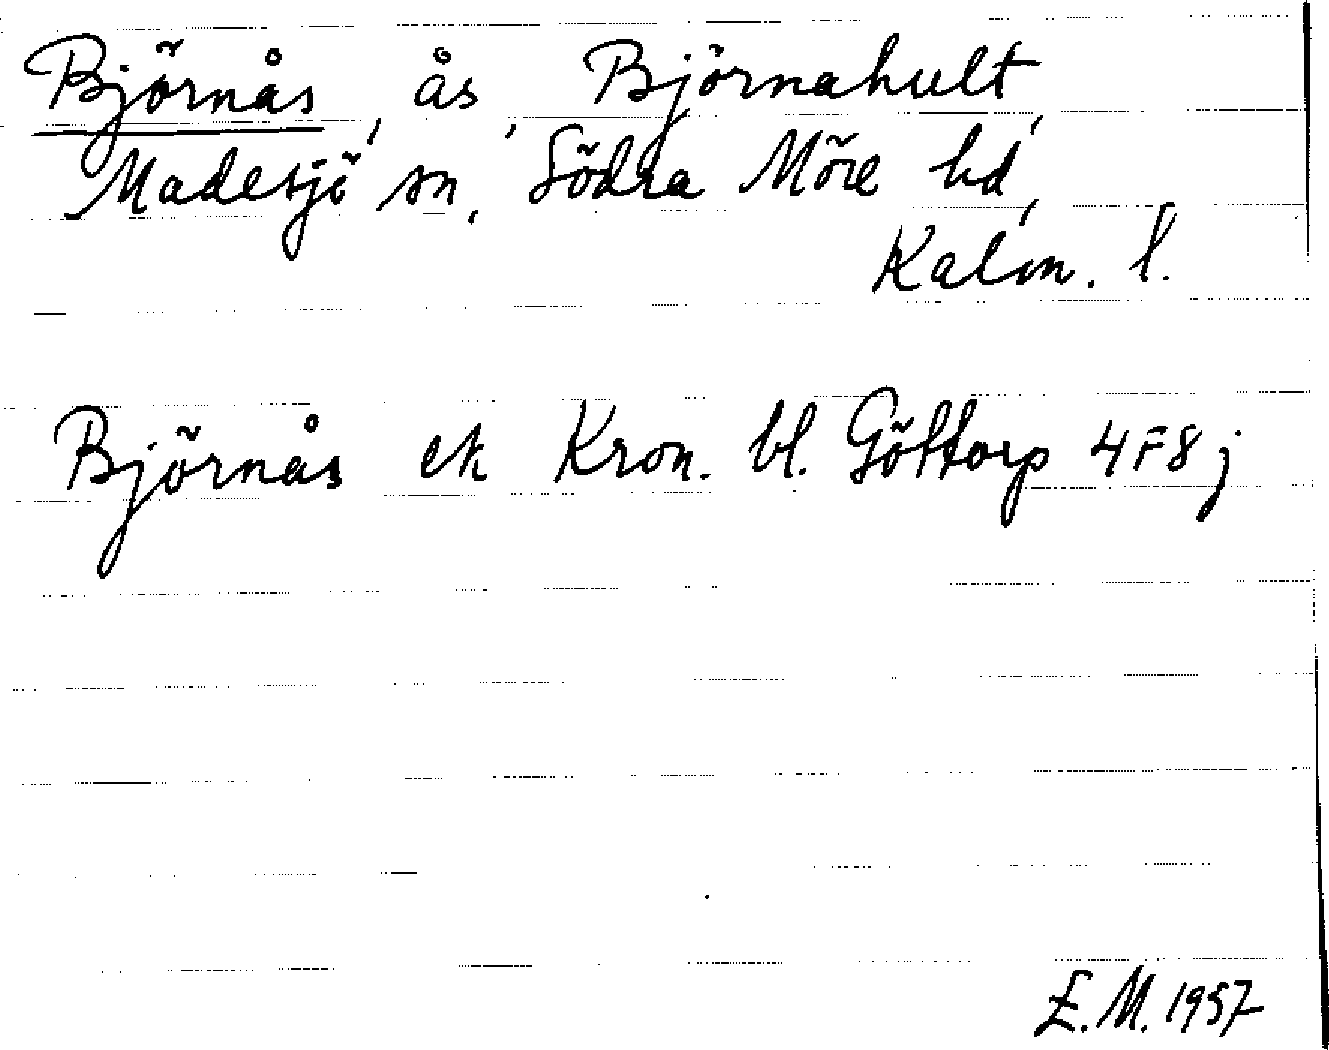 Björnås, ås, Björnahult,
Madesjö sn, Södra Möre hd,
Kalm. l.
Björnås ek Kron. bl. Göttorp 4F8j
E.M. 1957